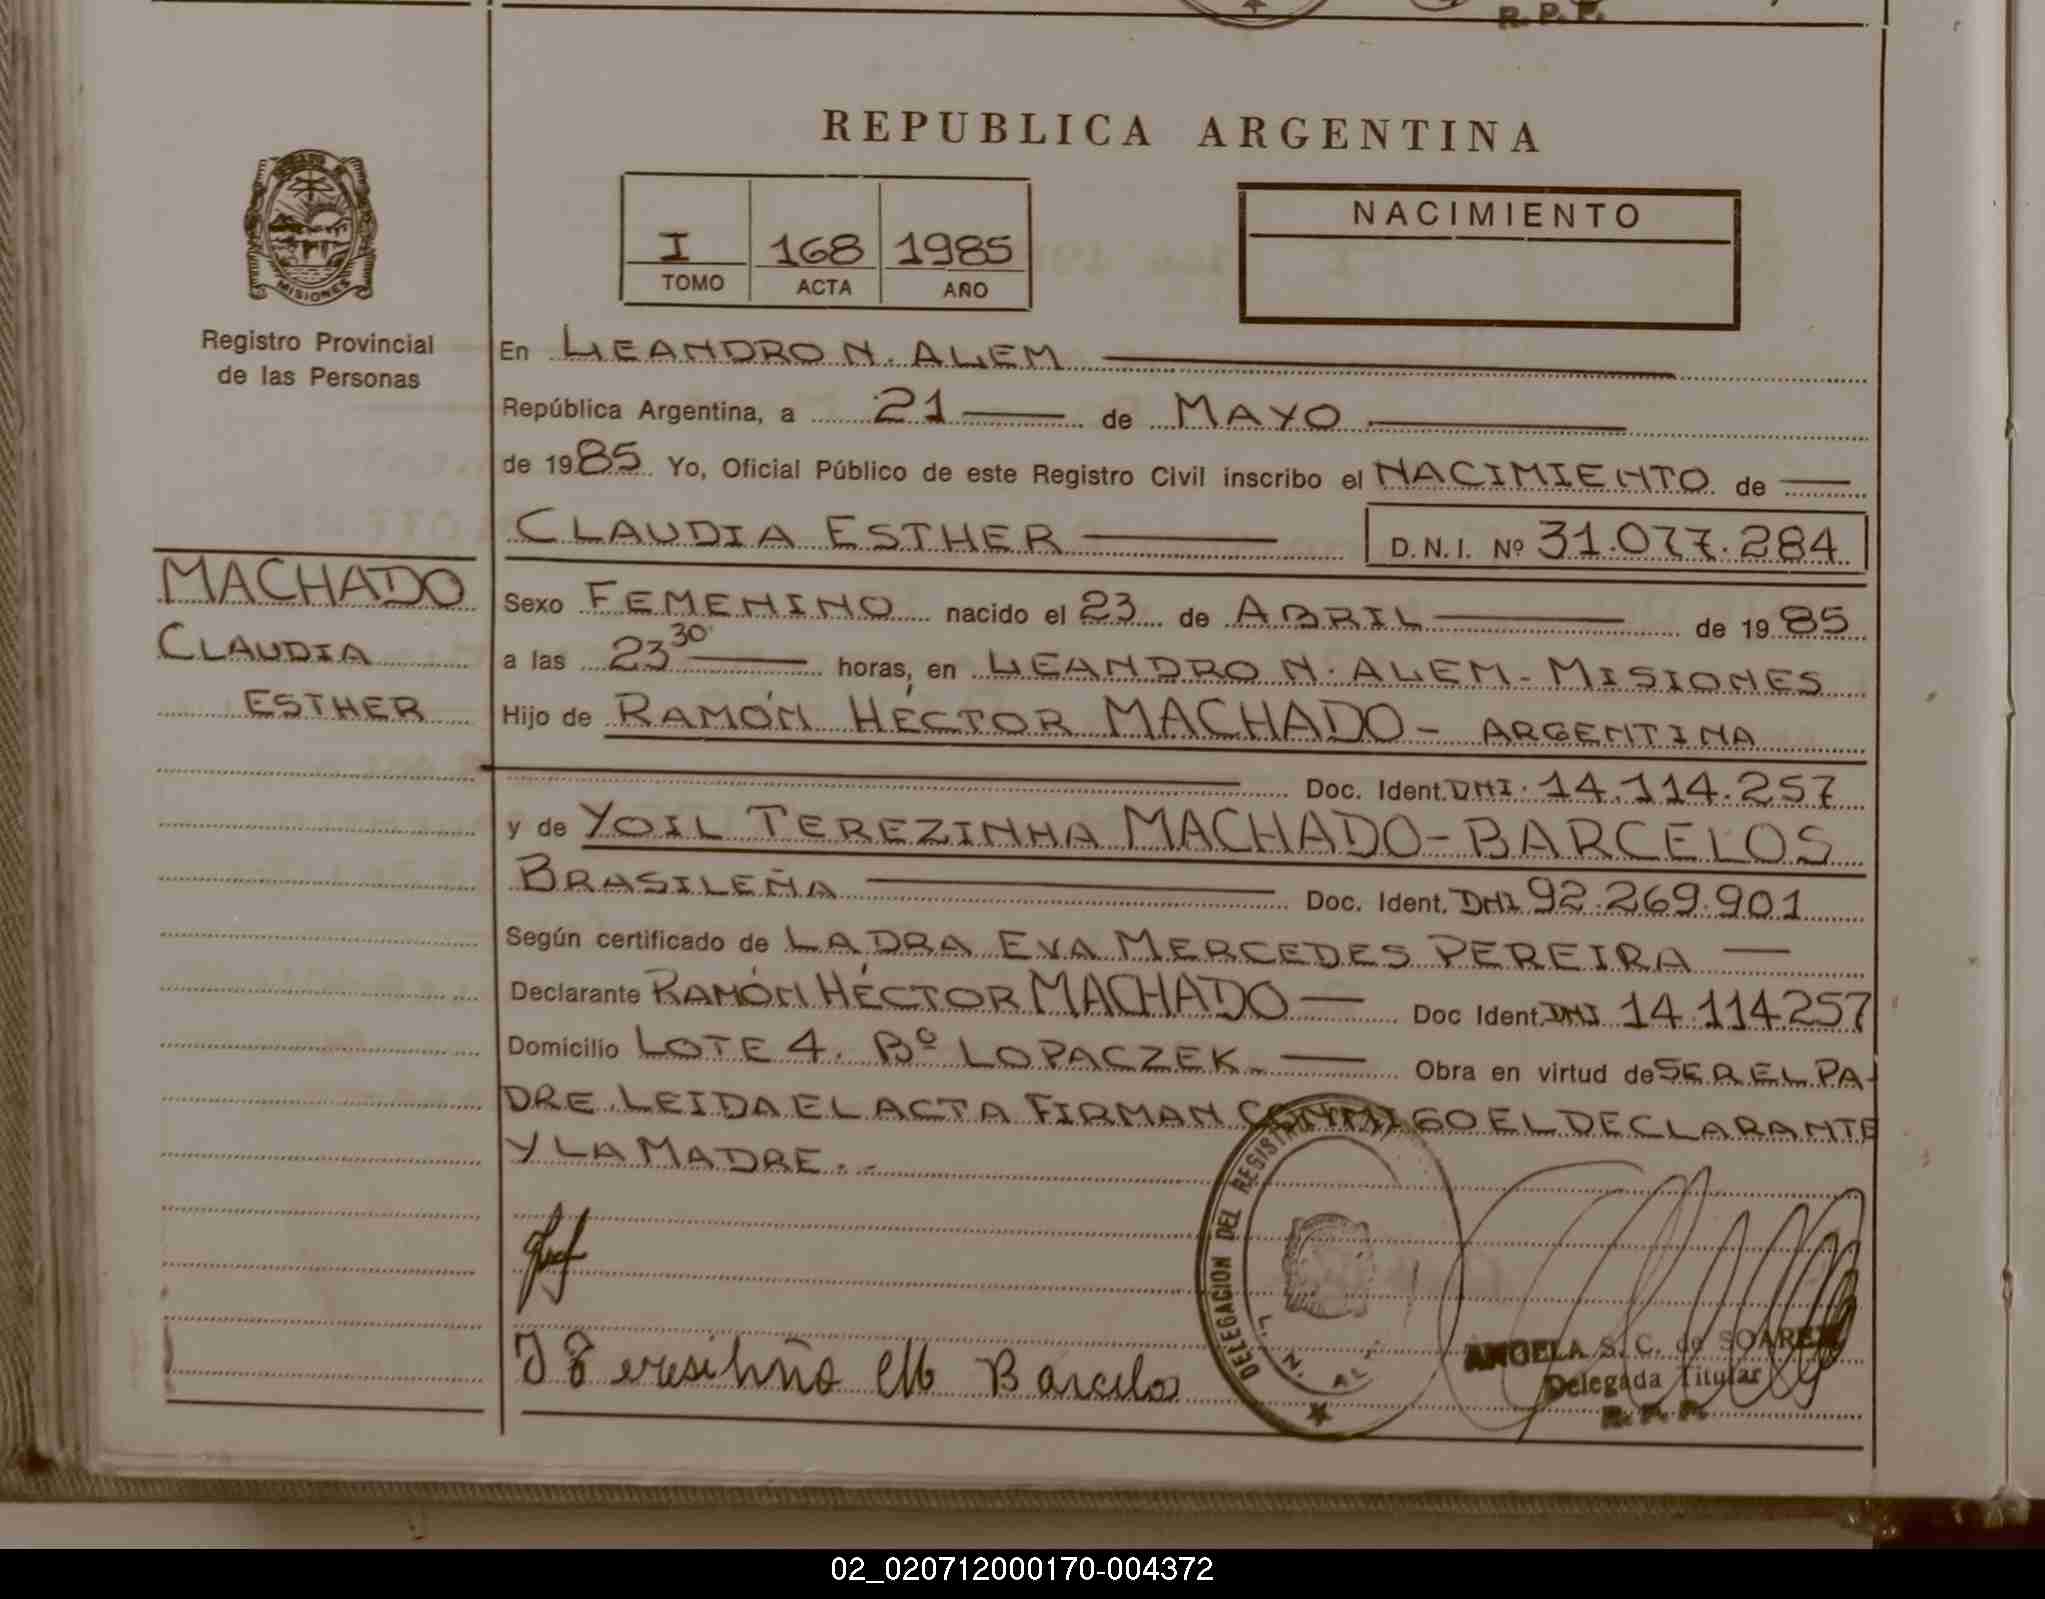 R. P. P.
REPUBLICA ARGENTINA
MISIONES
Registro Provincial
de las Personas
I 168 1985
TOMO ACTA AÑO
NACIMIENTO
En LEANDRO N. ALEM
República Argentina, a 21 de MAYO
de 1985 Yo, Oficial Público de este Registro Civil inscribo el NACIMIENTO de
CLAUDIA ESTHER D.N.I. Nº 31.077.284
MACHADO
CLAUDIA
ESTHER
Sexo FEMENINO nacido el 23 de ABRIL de 1985
a las 23 30 horas, en LEANDRO N. ALEM - MISIONES
Hijo de RAMÓN HÉCTOR MACHADO - ARGENTINA
Doc. Ident. DNI. 14.114.257
y de YOIL TEREZINHA MACHADO-BARCELOS
BRASILEÑA Doc. Ident. DNI 92.269.901
Según certificado de LA DRA EVA MERCEDES PEREIRA
Declarante RAMÓN HÉCTOR MACHADO Doc Ident. DNI 14.114.257
Domicilio LOTE 4. Bº LOPACZEK. Obra en virtud de SER EL PA-
DRE. LEIDA EL ACTA FIRMAN CONMIGO EL DECLARANTE
Y LA MADRE.-
DELEGACION DEL REGISTRO
L. N. AL
ANGELA S. C. de SOAREZ
Delegada Titular
R. P. P.
Barcelos
02_020712000170-004372